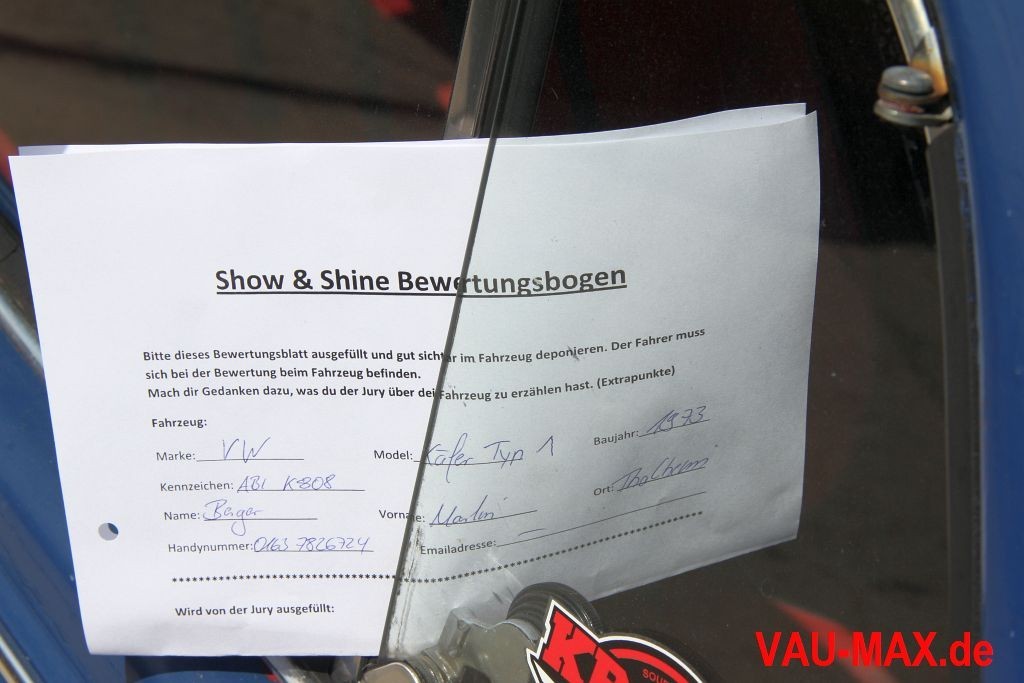 Show & Shine Bewertungsbogen
Bitte dieses Bewertungsblatt ausgefüllt und gut sichtbar im Fahrzeug deponieren. Der Fahrer muss
sich bei der Bewertung beim Fahrzeug befinden.
Mach dir Gedanken dazu, was du der Jury über dei Fahrzeug zu erzählen hast. (Extrapunkte)
Fahrzeug:
Marke: VW Model: Käfer Typ 1 Baujahr: 1973
Kennzeichen: ABI K808 Ort: Thalheim
Name: Berger Vorname: Martin
Handynummer: 0163 7826724 Emailadresse:
Wird von der Jury ausgefüllt:
VAU-MAX.de